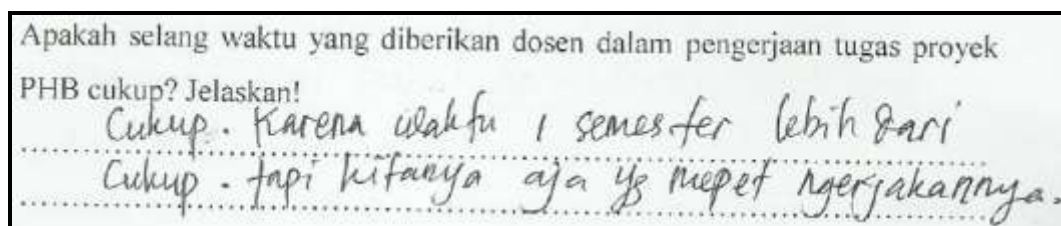 Apakah selang waktu yang diberikan dosen dalam pengerjaan tugas proyek
PHB cukup? Jelaskan!
Cukup. Karena waktu 1 semester lebih dari
Cukup. tapi kitanya aja yg mepet ngerjakannya.